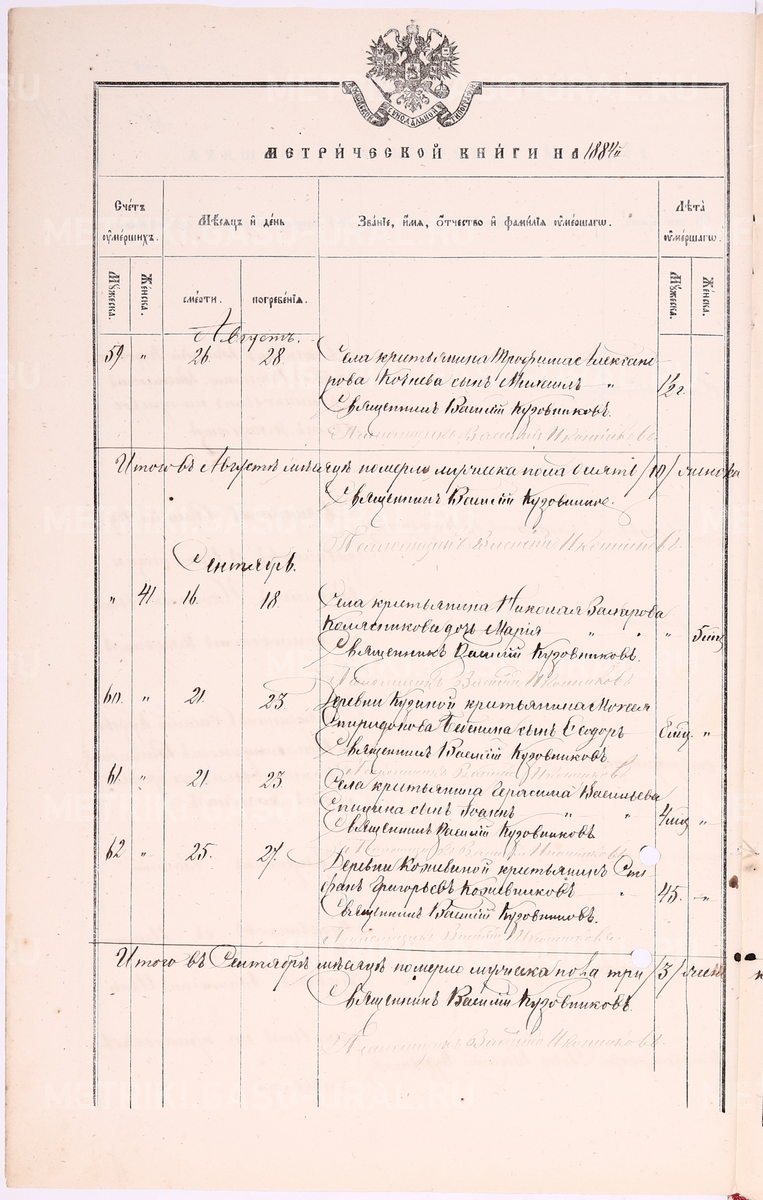 МЕТРИ́ЧЕСКОЙ КНИ́ГИ НА 1884й
Сче́тъ ᲂу҆ме́ршихъ.
Мѣ́сяцъ и де́нь
Зва́нїе, и҆́мя, ѻ҆́тчество и фами́лїя ᲂу҆ме́ршагѡ.
Лѣ́та ᲂу҆ме́ршагѡ.
Мꙋ́жеска.
Же́нска.
сме́рти.
погребе́нїя.
Мꙋ́жеска.
Же́нска.
Августъ.
59. " 26 28 Села крестьянина Трофима Александ-
рова сынъ Михаилъ " 1/2 г.
Священникъ Василій Кузовниковъ.
Псаломщикъ Василій Иконниковъ.
Итого въ Августѣ мѣсяцѣ померло мужеска пола /10/ женска
Священникъ Василій Кузовников.
Псаломщикъ Василій Иконниковъ.
Сентябрь.
" 41 16. 18 Села крестьянина Николая Захарова
Колясникова дочь Марія " " " 5 мѣц
Священникъ Василій Кузовниковъ.
Псаломщикъ Василій Иконниковъ
60. " 21. 23 Деревни крестьянина Моисея
Спиридонова сынъ Ѳеодоръ мѣц. "
Священникъ Василій Кузовниковъ.
Псаломщикъ Василій Иконниковъ
61. " 21. 23. Села крестьянина Герасима Васильева
сынъ Іоаннъ " " 4 мѣц "
Священникъ Василій Кузовниковъ
Псаломщикъ Василій Иконниковъ.
62 " 25. 27. Деревни Кожевиной крестьянинъ Сте-
фанъ Григорьевъ Кожевниковъ " 45. "
Священникъ Василій Кузовниковъ.
Псаломщикъ Василій Иконниковъ
Итого въ Сентябрѣ мѣсяцѣ померло мужеска пола три /3/ женс
Священникъ Василій Кузовниковъ.
Псаломщикъ Василій Иконниковъ.
METRIKI.GASO-URAL.RU